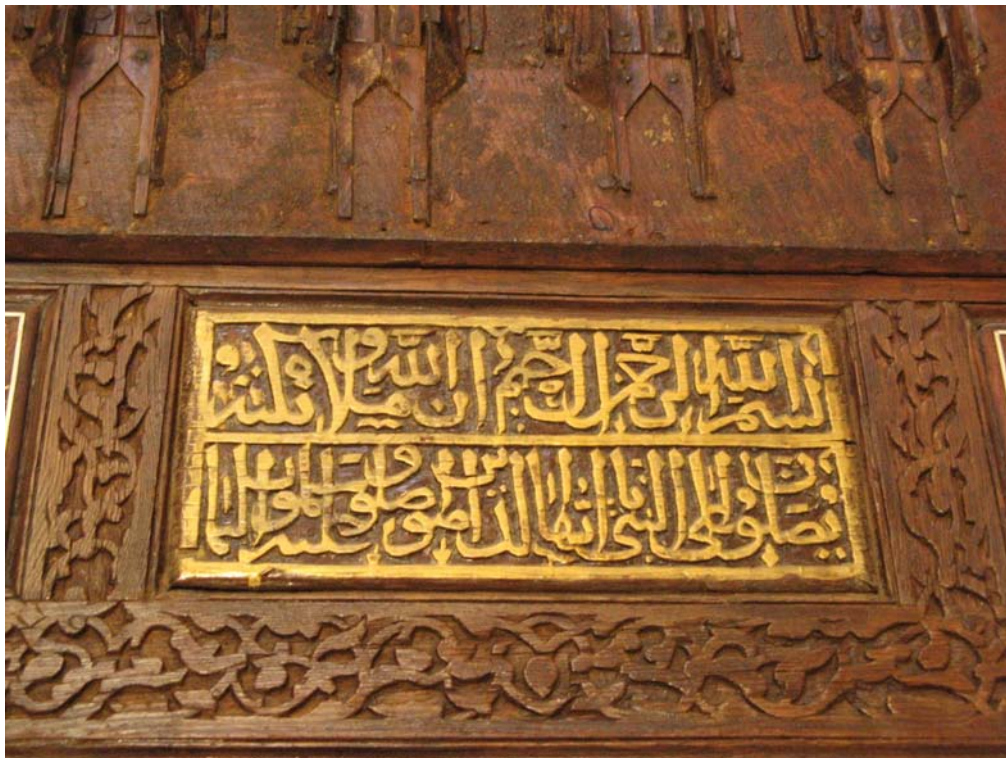 بسم الله الرحمن الرحيم ان الله وملائكته
يصلون على النبي يا ايها الذين امنوا صلوا عليه وسلموا تسليما